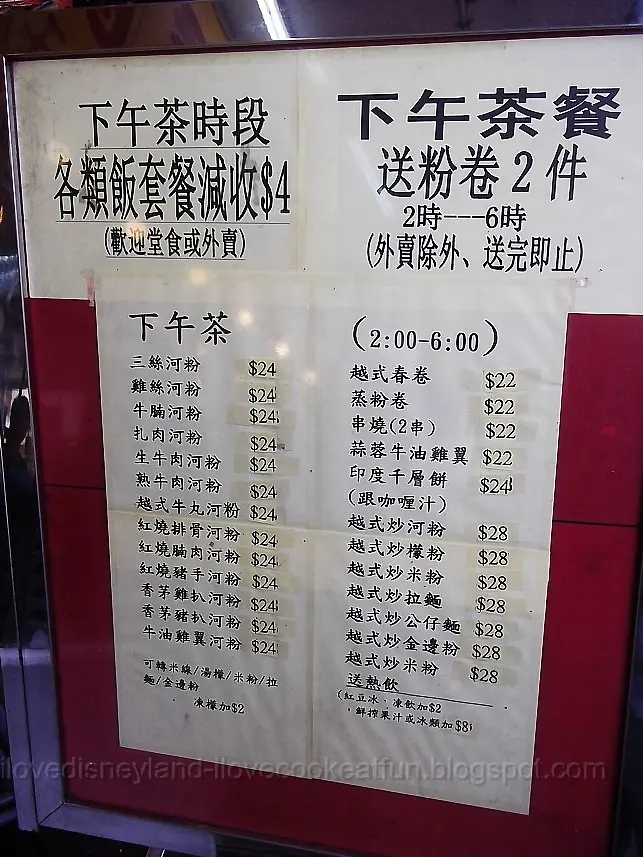 下午茶時段
各類飯套餐減收$4
(歡迎堂食或外賣)
下午茶餐
送粉卷2件
2時---6時
(外賣除外、送完即止)
下午茶
三絲河粉 $24
雞絲河粉 $24
牛腩河粉 $24
扎肉河粉 $24
生牛肉河粉 $24
熟牛肉河粉 $24
越式牛丸河粉 $24
紅燒排骨河粉 $24
紅燒腩肉河粉 $24
紅燒豬手河粉 $24
香茅雞扒河粉 $24
香茅豬扒河粉 $24
牛油雞翼河粉 $24
可轉米線/湯檬/米粉/拉
麵/金邊粉
凍檬加$2
(2:00-6:00)
越式春卷 $22
蒸粉卷 $22
串燒(2串) $22
蒜蓉牛油雞翼 $22
印度千層餅 $24
(跟咖喱汁)
越式炒河粉 $28
越式炒檬粉 $28
越式炒米粉 $28
越式炒拉麵 $28
越式炒公仔麵 $28
越式炒金邊粉 $28
越式炒米粉 $28
送熱飲
(紅豆冰、凍飲加$2
鮮搾果汁或冰類加$8)
ilovedisneyland-ilovecookeatfun.blogspot.com